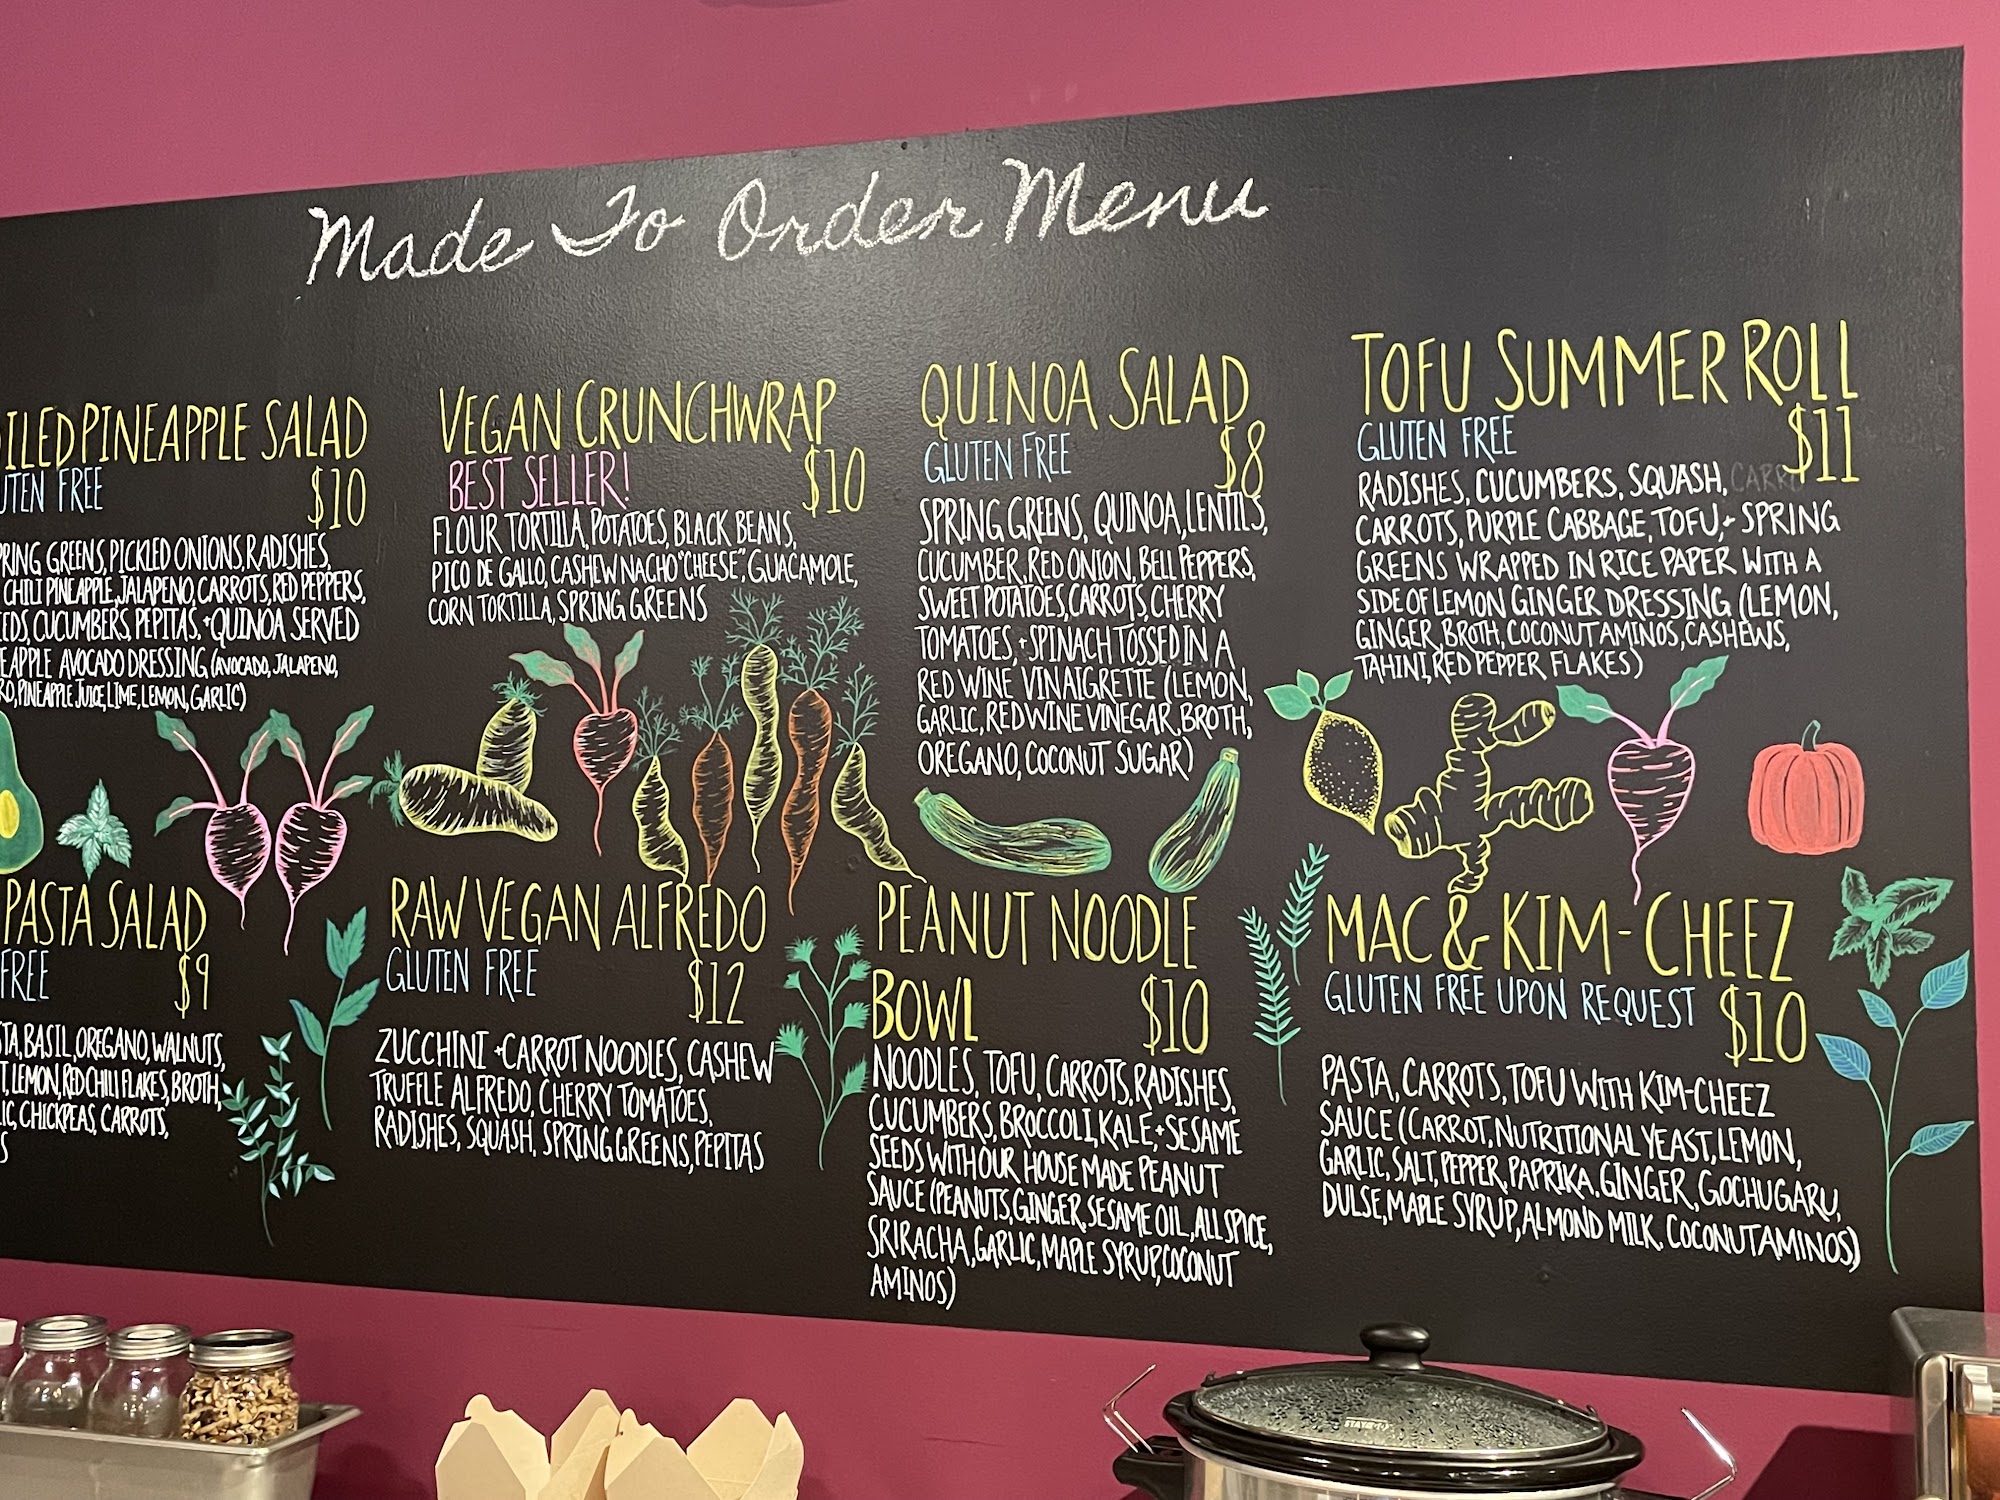 Made To Order Menu
PINEAPPLE SALAD
FREE
$10
GREENS, PICKLED ONIONS, RADISHES,
CHILI PINEAPPLE, JALAPENO, CARROTS, RED PEPPERS,
CUCUMBERS, PEPITAS, + QUINOA SERVED
AVOCADO DRESSING (AVOCADO, JALAPENO,
PINEAPPLE JUICE, LIME, LEMON, GARLIC)
VEGAN CRUNCHWRAP
BEST SELLER!
$10
FLOUR TORTILLA, POTATOES, BLACK BEANS,
PICO DE GALLO, CASHEW NACHO "CHEESE", GUACAMOLE,
CORN TORTILLA, SPRING GREENS
QUINOA SALAD
GLUTEN FREE
$8
SPRING GREENS, QUINOA, LENTILS,
CUCUMBER, RED ONION, BELL PEPPERS,
SWEET POTATOES, CARROTS, CHERRY
TOMATOES, + SPINACH TOSSED IN A
RED WINE VINAIGRETTE (LEMON,
GARLIC, RED WINE VINEGAR, BROTH,
OREGANO, COCONUT SUGAR)
TOFU SUMMER ROLL
GLUTEN FREE
$11
RADISHES, CUCUMBERS, SQUASH,
CARROTS, PURPLE CABBAGE, TOFU, + SPRING
GREENS WRAPPED IN RICE PAPER WITH A
SIDE OF LEMON GINGER DRESSING (LEMON,
GINGER, BROTH, COCONUT AMINOS, CASHEWS,
TAHINI, RED PEPPER FLAKES)
PASTA SALAD
FREE
$9
BASIL, OREGANO, WALNUTS,
LEMON, RED CHILI FLAKES, BROTH,
CHICKPEAS, CARROTS,
RAW VEGAN ALFREDO
GLUTEN FREE
$12
ZUCCHINI + CARROT NOODLES, CASHEW
TRUFFLE ALFREDO, CHERRY TOMATOES,
RADISHES, SQUASH, SPRING GREENS, PEPITAS
PEANUT NOODLE
BOWL
$10
NOODLES, TOFU, CARROTS, RADISHES,
CUCUMBERS, BROCCOLI, KALE, + SESAME
SEEDS WITH OUR HOUSE MADE PEANUT
SAUCE (PEANUTS, GINGER, SESAME OIL, ALL SPICE,
SRIRACHA, GARLIC, MAPLE SYRUP, COCONUT
AMINOS)
MAC & KIM-CHEEZ
GLUTEN FREE UPON REQUEST
$10
PASTA, CARROTS, TOFU WITH KIM-CHEEZ
SAUCE (CARROT, NUTRITIONAL YEAST, LEMON,
GARLIC, SALT, PEPPER, PAPRIKA, GINGER, GOCHUGARU,
DULSE, MAPLE SYRUP, ALMOND MILK, COCONUT AMINOS)